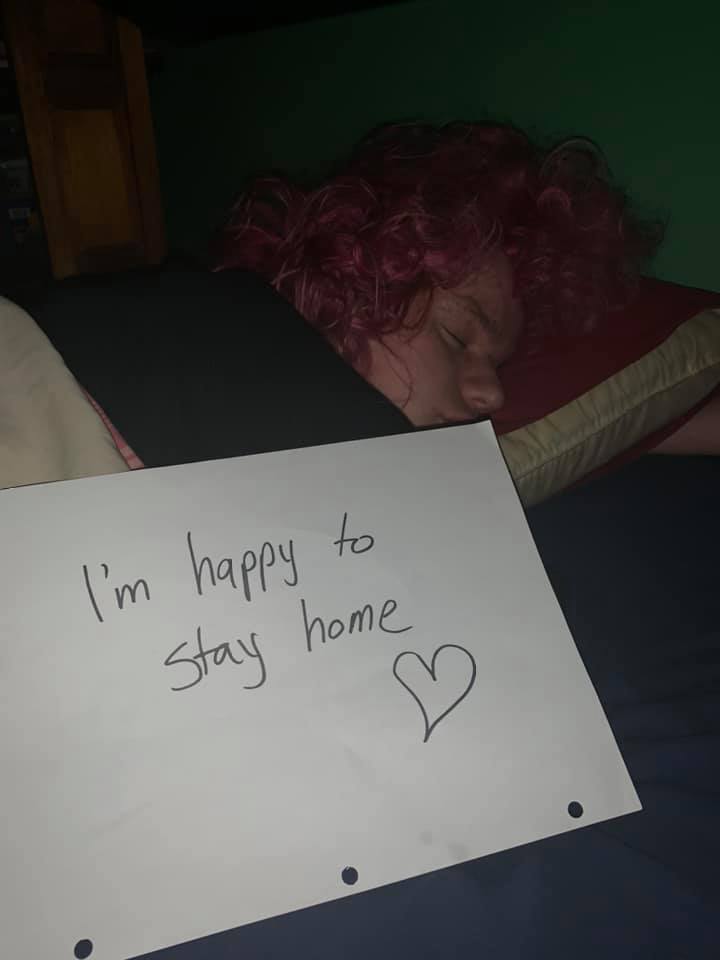 I'm happy to
stay home